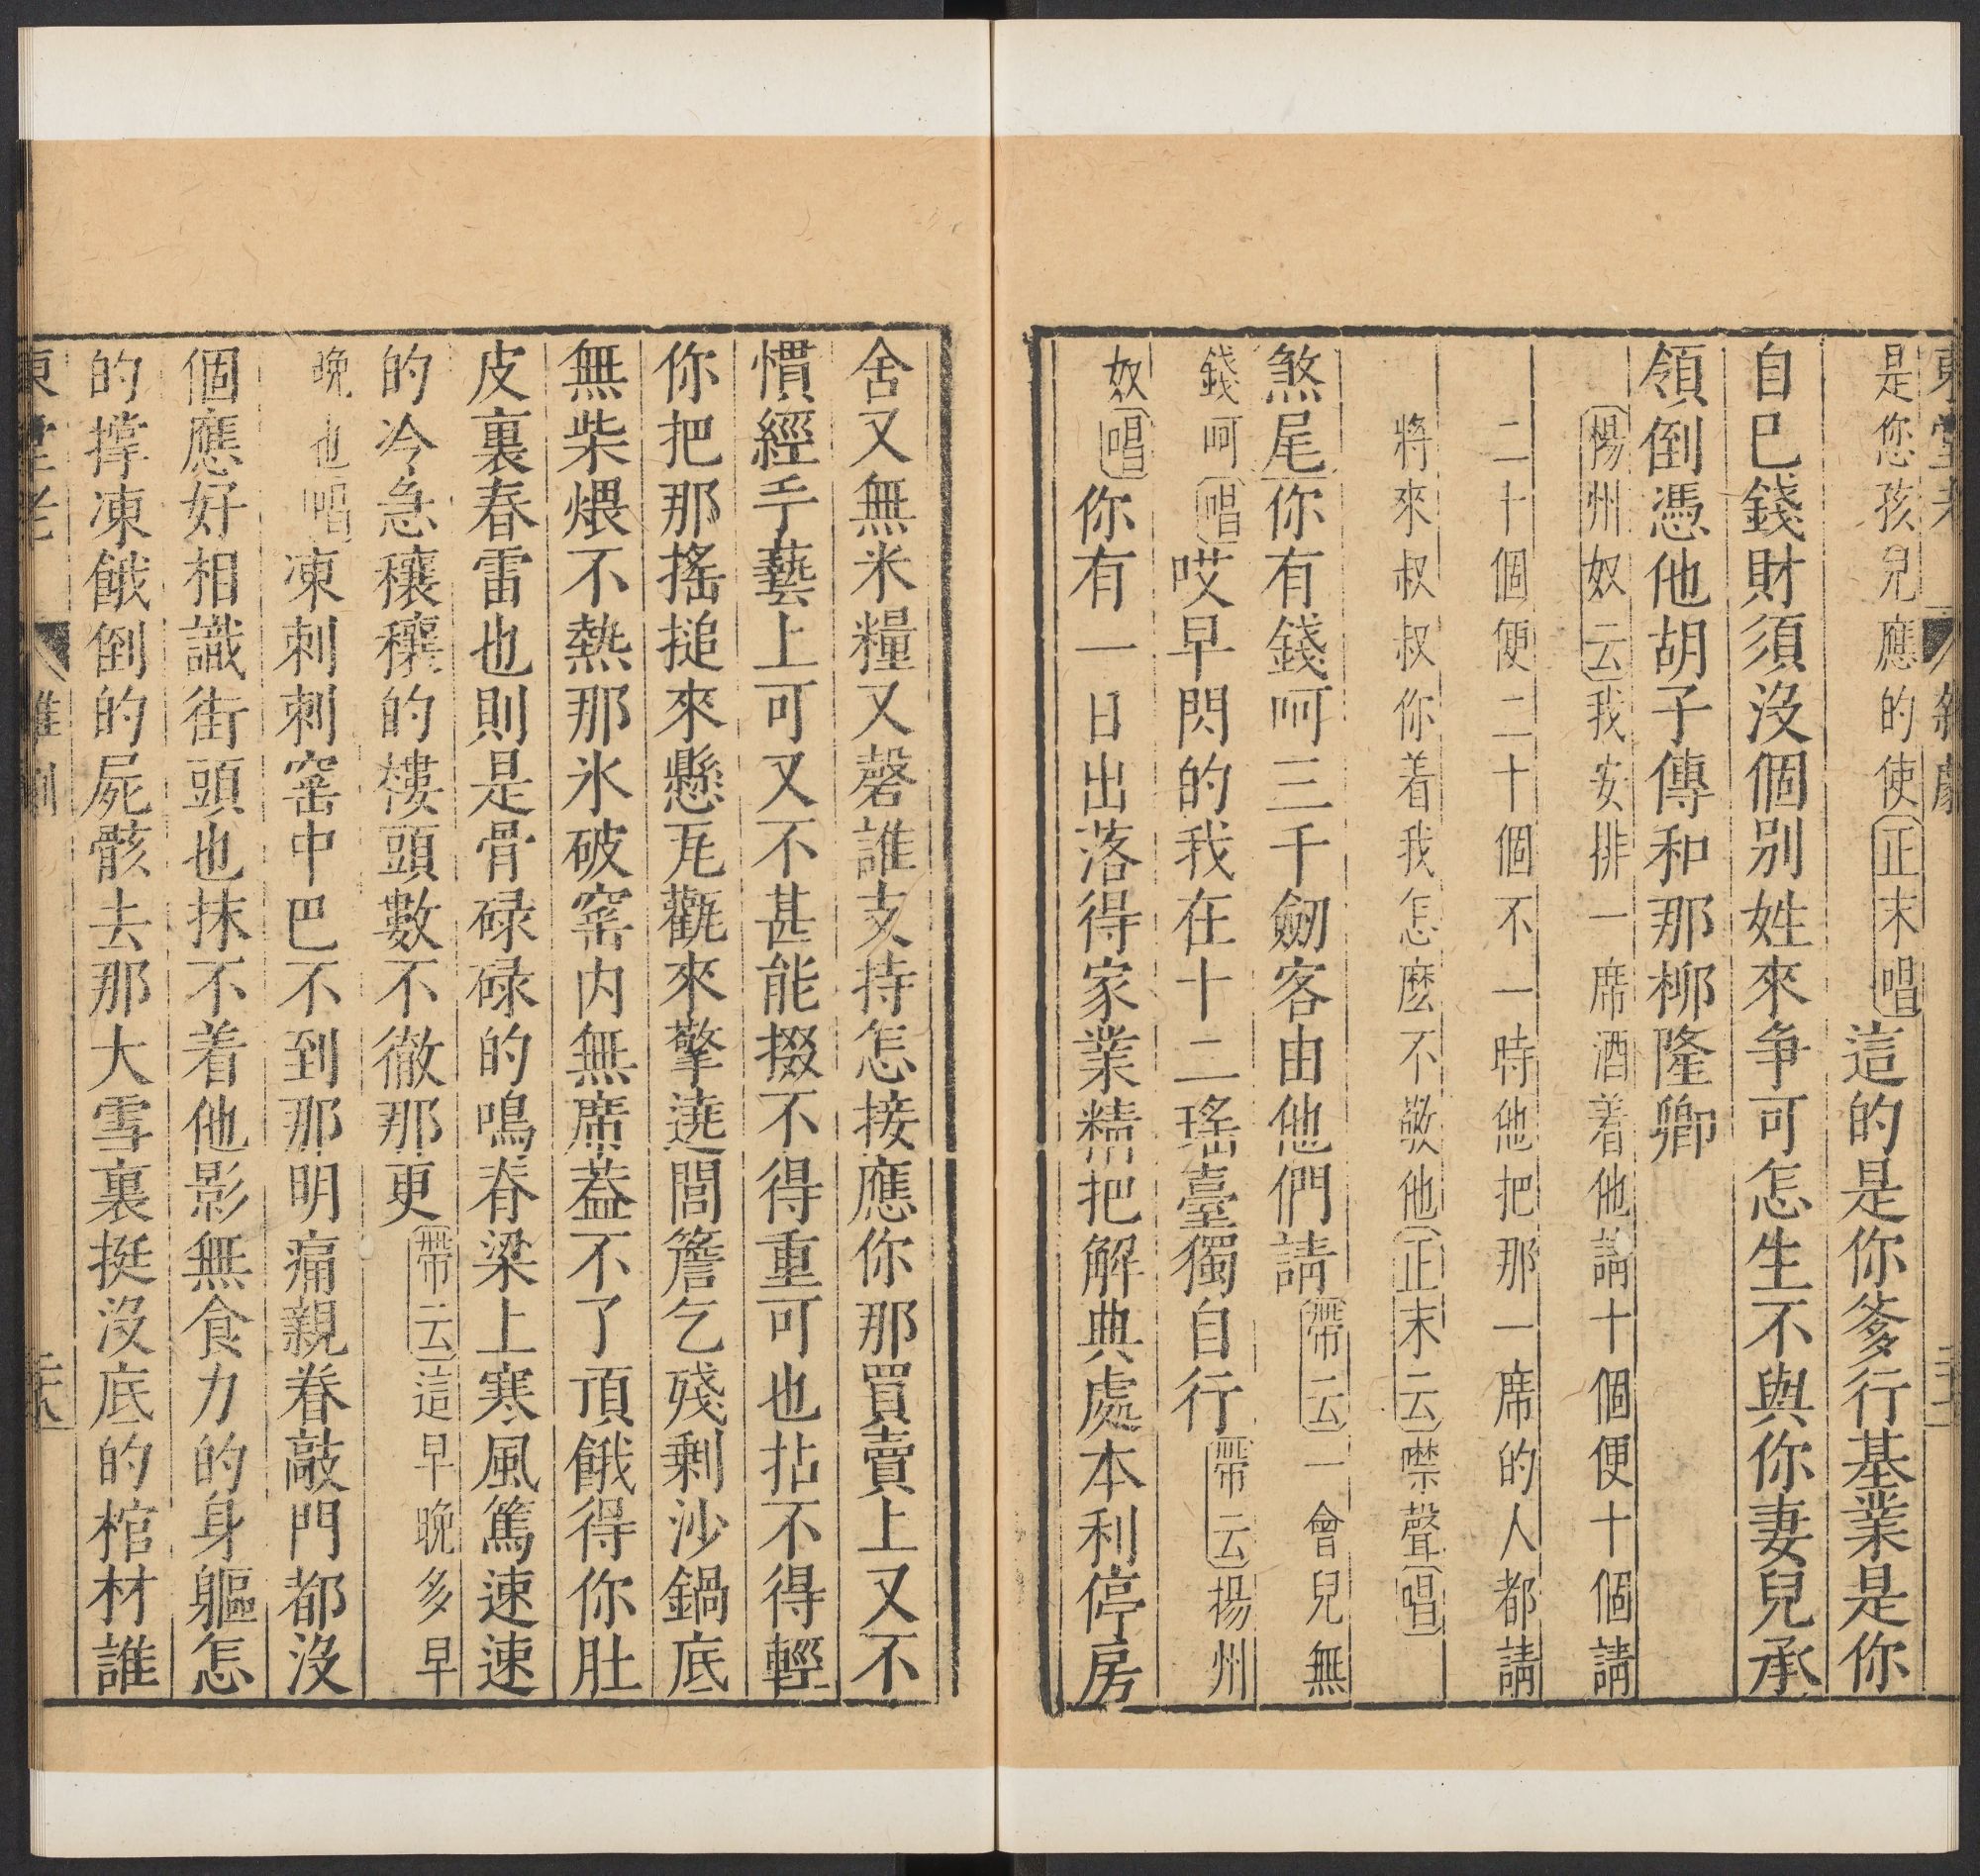 是您孩兒應的使正末唱這的是你爹行基業是你
自巳錢財須沒個別姓來争可怎生不與你妻兒承
領倒憑他胡子傳和那柳隆卿
楊州奴云我安排一席酒着他請十個便十個請
二十個便二十個不一時他把那一席的人都請
將來叔叔你着我怎麽不敬他正末云噤聲唱
煞尾你有錢呵三千劒客由他們請帶云一會兒無
錢呵唱哎早閃的我在十二瑤臺獨自行帶云揚州
奴唱你有一日出落得家業精把解典處本利停房
舍又無米糧又罄誰支持怎接應你那買賣上又不
慣經手藝上可又不甚能掇不得重可也拈不得輕
你把那搖搥來懸瓦觀來擎遶閭簷乞殘剩沙鍋底
無柴煨不熱那氷破窰内無席蓋不了頂餓得你肚
皮裏春雷也則是骨碌碌的鳴脊梁上寒風篤速速
的冷急穰穰的樓頭數不徹那更帶云這早晚多早
晚也唱凍刺刺窰中巴不到那明痛親眷敲門都沒
個應好相識街頭也抹不着他影無食力的身軀怎
的撑凍餓倒的屍骸去那大雪裏挺沒底的棺材誰
東堂老 雜劇